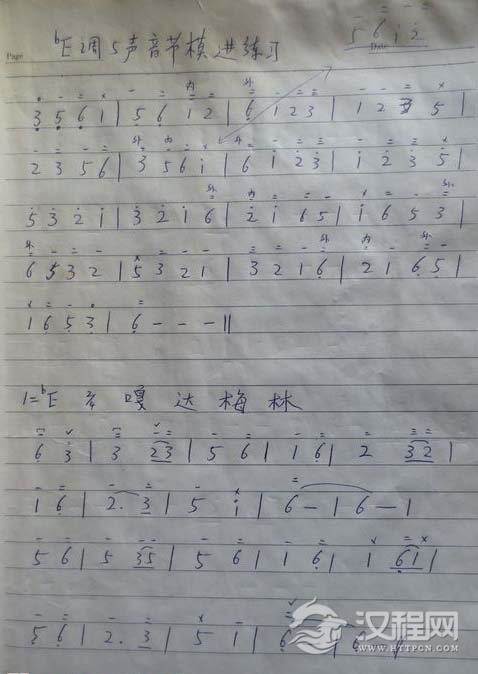 ᵇE调5声音节模进练习
5 6 1 2
Page
Date
3 5 6 1 | 5 6 1 2 | 6 1 2 3 | 1 2 3 5 |
2 3 5 6 | 3 5 6 i | 6 i 2 3 | i 2 3 5 |
5 3 2 i | 3 2 i 6 | 2 i 6 5 | i 6 5 3 |
6 5 3 2 | 5 3 2 1 | 3 2 1 6 | 2 1 6 5 |
1 6 5 3 | 6 - - - ||
1=ᵇE 2/4 嘎达梅林
6 3 | 3 23 | 5 6 | 1 6 | 2 32 |
1 6 | 2. 3 | 5 i | 6 - | 6 - |
5 6 | 5 35 | 5 6 | 1 6 | 1 61 |
5 6 | 2. 3 | 5 1 | 6 - | 6 - ||
汉程网
WWW.HTTPCN.COM